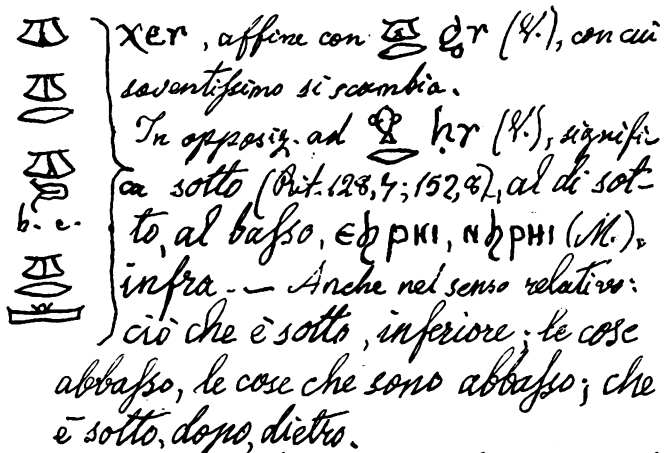 χer, affine con 𓌨𓂋 g̣r (V.), con cui
soventissimo si scambia.
In opposiz. ad 𓁷𓂋 ḥr (V.), signifi-
ca sotto (Rit. 128,7; 152,8), al di sot-
b. e. to, al basso, ⲉϧⲣⲏⲓ, ⲛϧⲣⲏⲓ (M.),
infra. — Anche nel senso relativo:
ciò che è sotto, inferiore; le cose
abbasso, le cose che sono abbasso; che
è sotto, dopo, dietro.